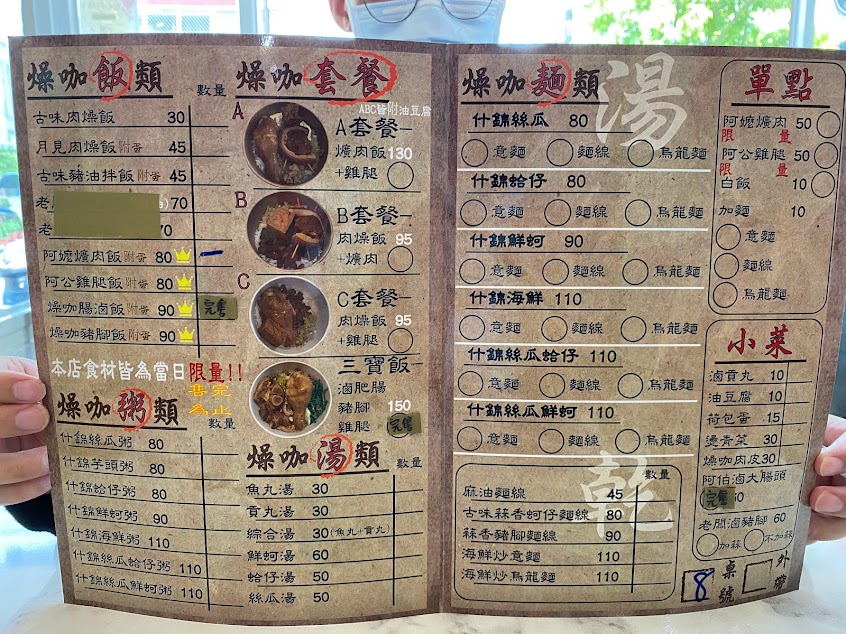 燥咖飯類
數量
古味肉燥飯 30
月見肉燥飯附蛋 45
古味豬油拌飯附蛋 45
老 70
老 70
阿嬤爌肉飯附蛋 80
阿公雞腿飯附蛋 80
燥咖腸滷飯附蛋 90 完售
燥咖豬腳飯附蛋 90
本店食材皆為當日限量!!
售完
為止
燥咖粥類
數量
什錦絲瓜粥 80
什錦芋頭粥 80
什錦蛤仔粥 80
什錦鮮蚵粥 90
什錦海鮮粥 110
什錦絲瓜蛤仔粥 110
什錦絲瓜鮮蚵粥 110
燥咖套餐
ABC皆附油豆腐
A
A套餐
爌肉飯 130
+雞腿
B
B套餐
肉燥飯 95
+爌肉
C
C套餐
肉燥飯 95
+雞腿
三寶飯
滷肥腸
豬腳 150
雞腿 完售
燥咖湯類
數量
魚丸湯 30
貢丸湯 30
綜合湯 30(魚丸+貢丸)
鮮蚵湯 60
蛤仔湯 50
絲瓜湯 50
燥咖麵類
湯
什錦絲瓜 80
意麵 麵線 烏龍麵
什錦蛤仔 80
意麵 麵線 烏龍麵
什錦鮮蚵 90
意麵 麵線 烏龍麵
什錦海鮮 110
意麵 麵線 烏龍麵
什錦絲瓜蛤仔 110
意麵 麵線 烏龍麵
什錦絲瓜鮮蚵 110
意麵 麵線 烏龍麵
乾
數量
麻油麵線 45
古味蒜香蚵仔麵線 80
蒜香豬腳麵線 90
海鮮炒意麵 110
海鮮炒烏龍麵 110
單點
阿嬤爌肉 50
限量
阿公雞腿 50
限量
白飯 10
加麵 10
意麵
麵線
烏龍麵
小菜
滷貢丸 10
油豆腐 10
荷包蛋 15
燙青菜 30
燥咖肉皮 30
阿伯滷大腸頭
完售
老闆滷豬腳 60
加蒜 不加蒜
8 桌號 外帶